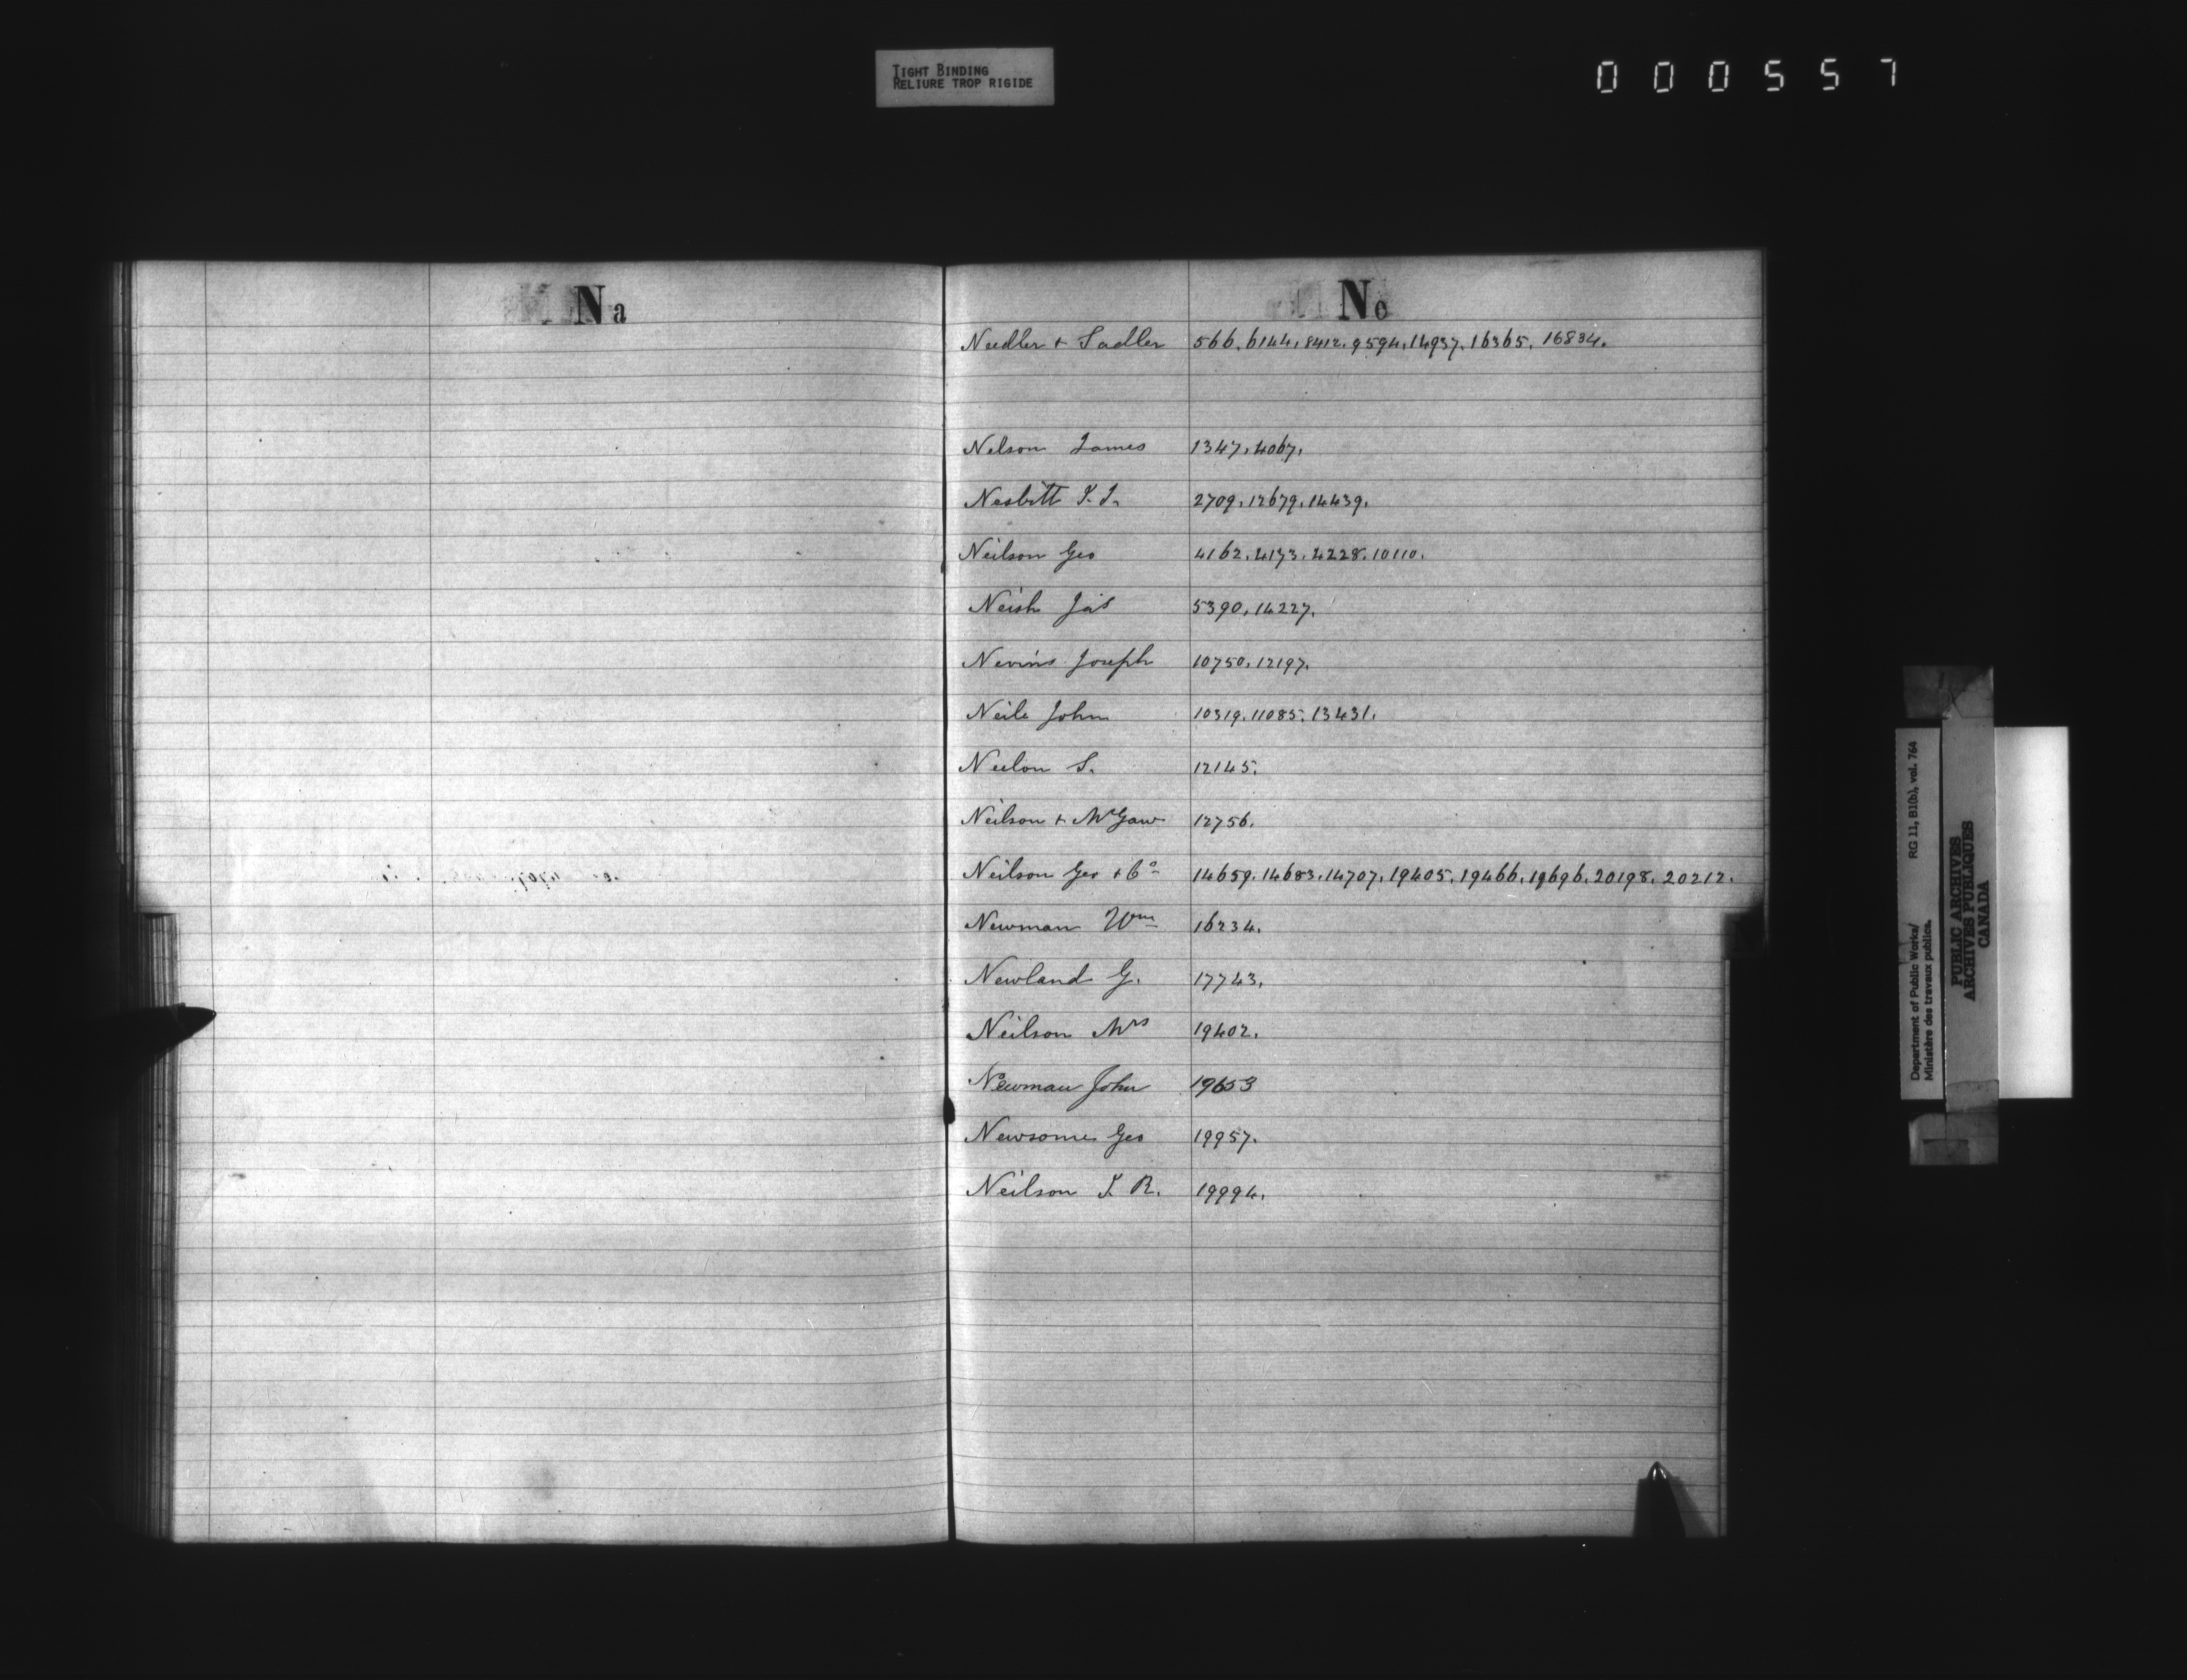 TIGHT BINDING
RELIURE TROP RIGIDE
000557
Na
Ne
Needler + Sadler 566. 6144. 8412. 9594. 14937. 16365. 16834.
Nelson James 1347. 4067.
Nesbitt 2709. 12679. 14439.
Neilson Geo 4162. 4173. 4228. 10110.
Neish Jas 5390. 14227.
Nevins Joseph 10750. 12197.
Neile John 10319. 11085. 13431.
Neelon S. 12145.
Neilson + McGaw 12756.
Neilson Geo + Co 14659. 14683. 14707. 19405. 19466. 19696. 20198. 20212.
Newman Wm 16234.
Newland G. 17743.
Neilson Mrs 19402.
Newman John 19653
Newsome Geo 19957.
Neilson R. 19994.
Department of Public Works/ RG 11, B1(b), vol. 764
Ministère des travaux publics.
PUBLIC ARCHIVES
ARCHIVES PUBLIQUES
CANADA